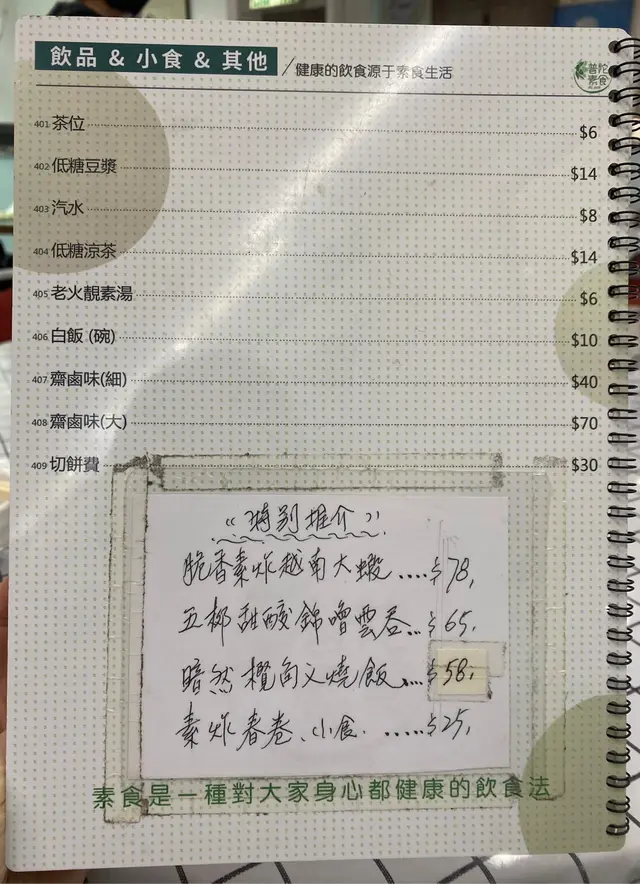 飲品 & 小食 & 其他 / 健康的飲食源于素食生活
普陀素食
401 茶位 $6
402 低糖豆漿 $14
403 汽水 $8
404 低糖涼茶 $14
405 老火靚素湯 $6
406 白飯 (碗) $10
407 齋鹵味(細) $40
408 齋鹵味(大) $70
409 切餅費 $30
"特别推介"
脆香素炸越南大蝦....$78,
五柳甜酸錦噌雲吞...$65,
暗然欖角义燒飯....$58,
素炸春卷、小食......$25,
素食是一種對大家身心都健康的飲食法